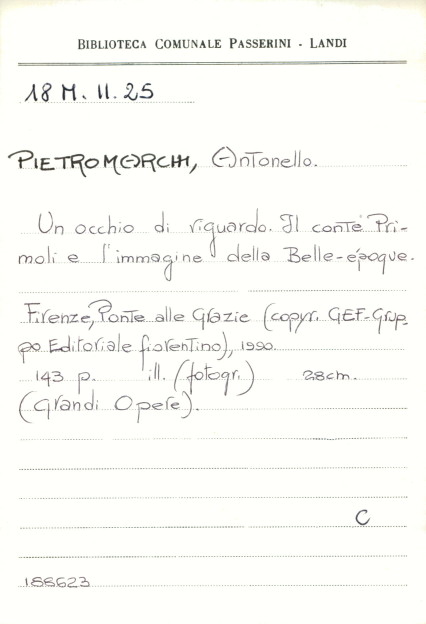 BIBLIOTECA COMUNALE PASSERINI - LANDI
18 M. II. 25
PIETROMARCHI, Antonello.
Un occhio di riguardo. Il conte Pri-
moli e l'immagine della Belle-époque.
Firenze, Ponte alle Grazie (copyr. GEF-Grup-
po Editoriale fiorentino), 1990.
143 p. ill. (fotogr.) 28cm.
(Grandi Opere).
C
188623